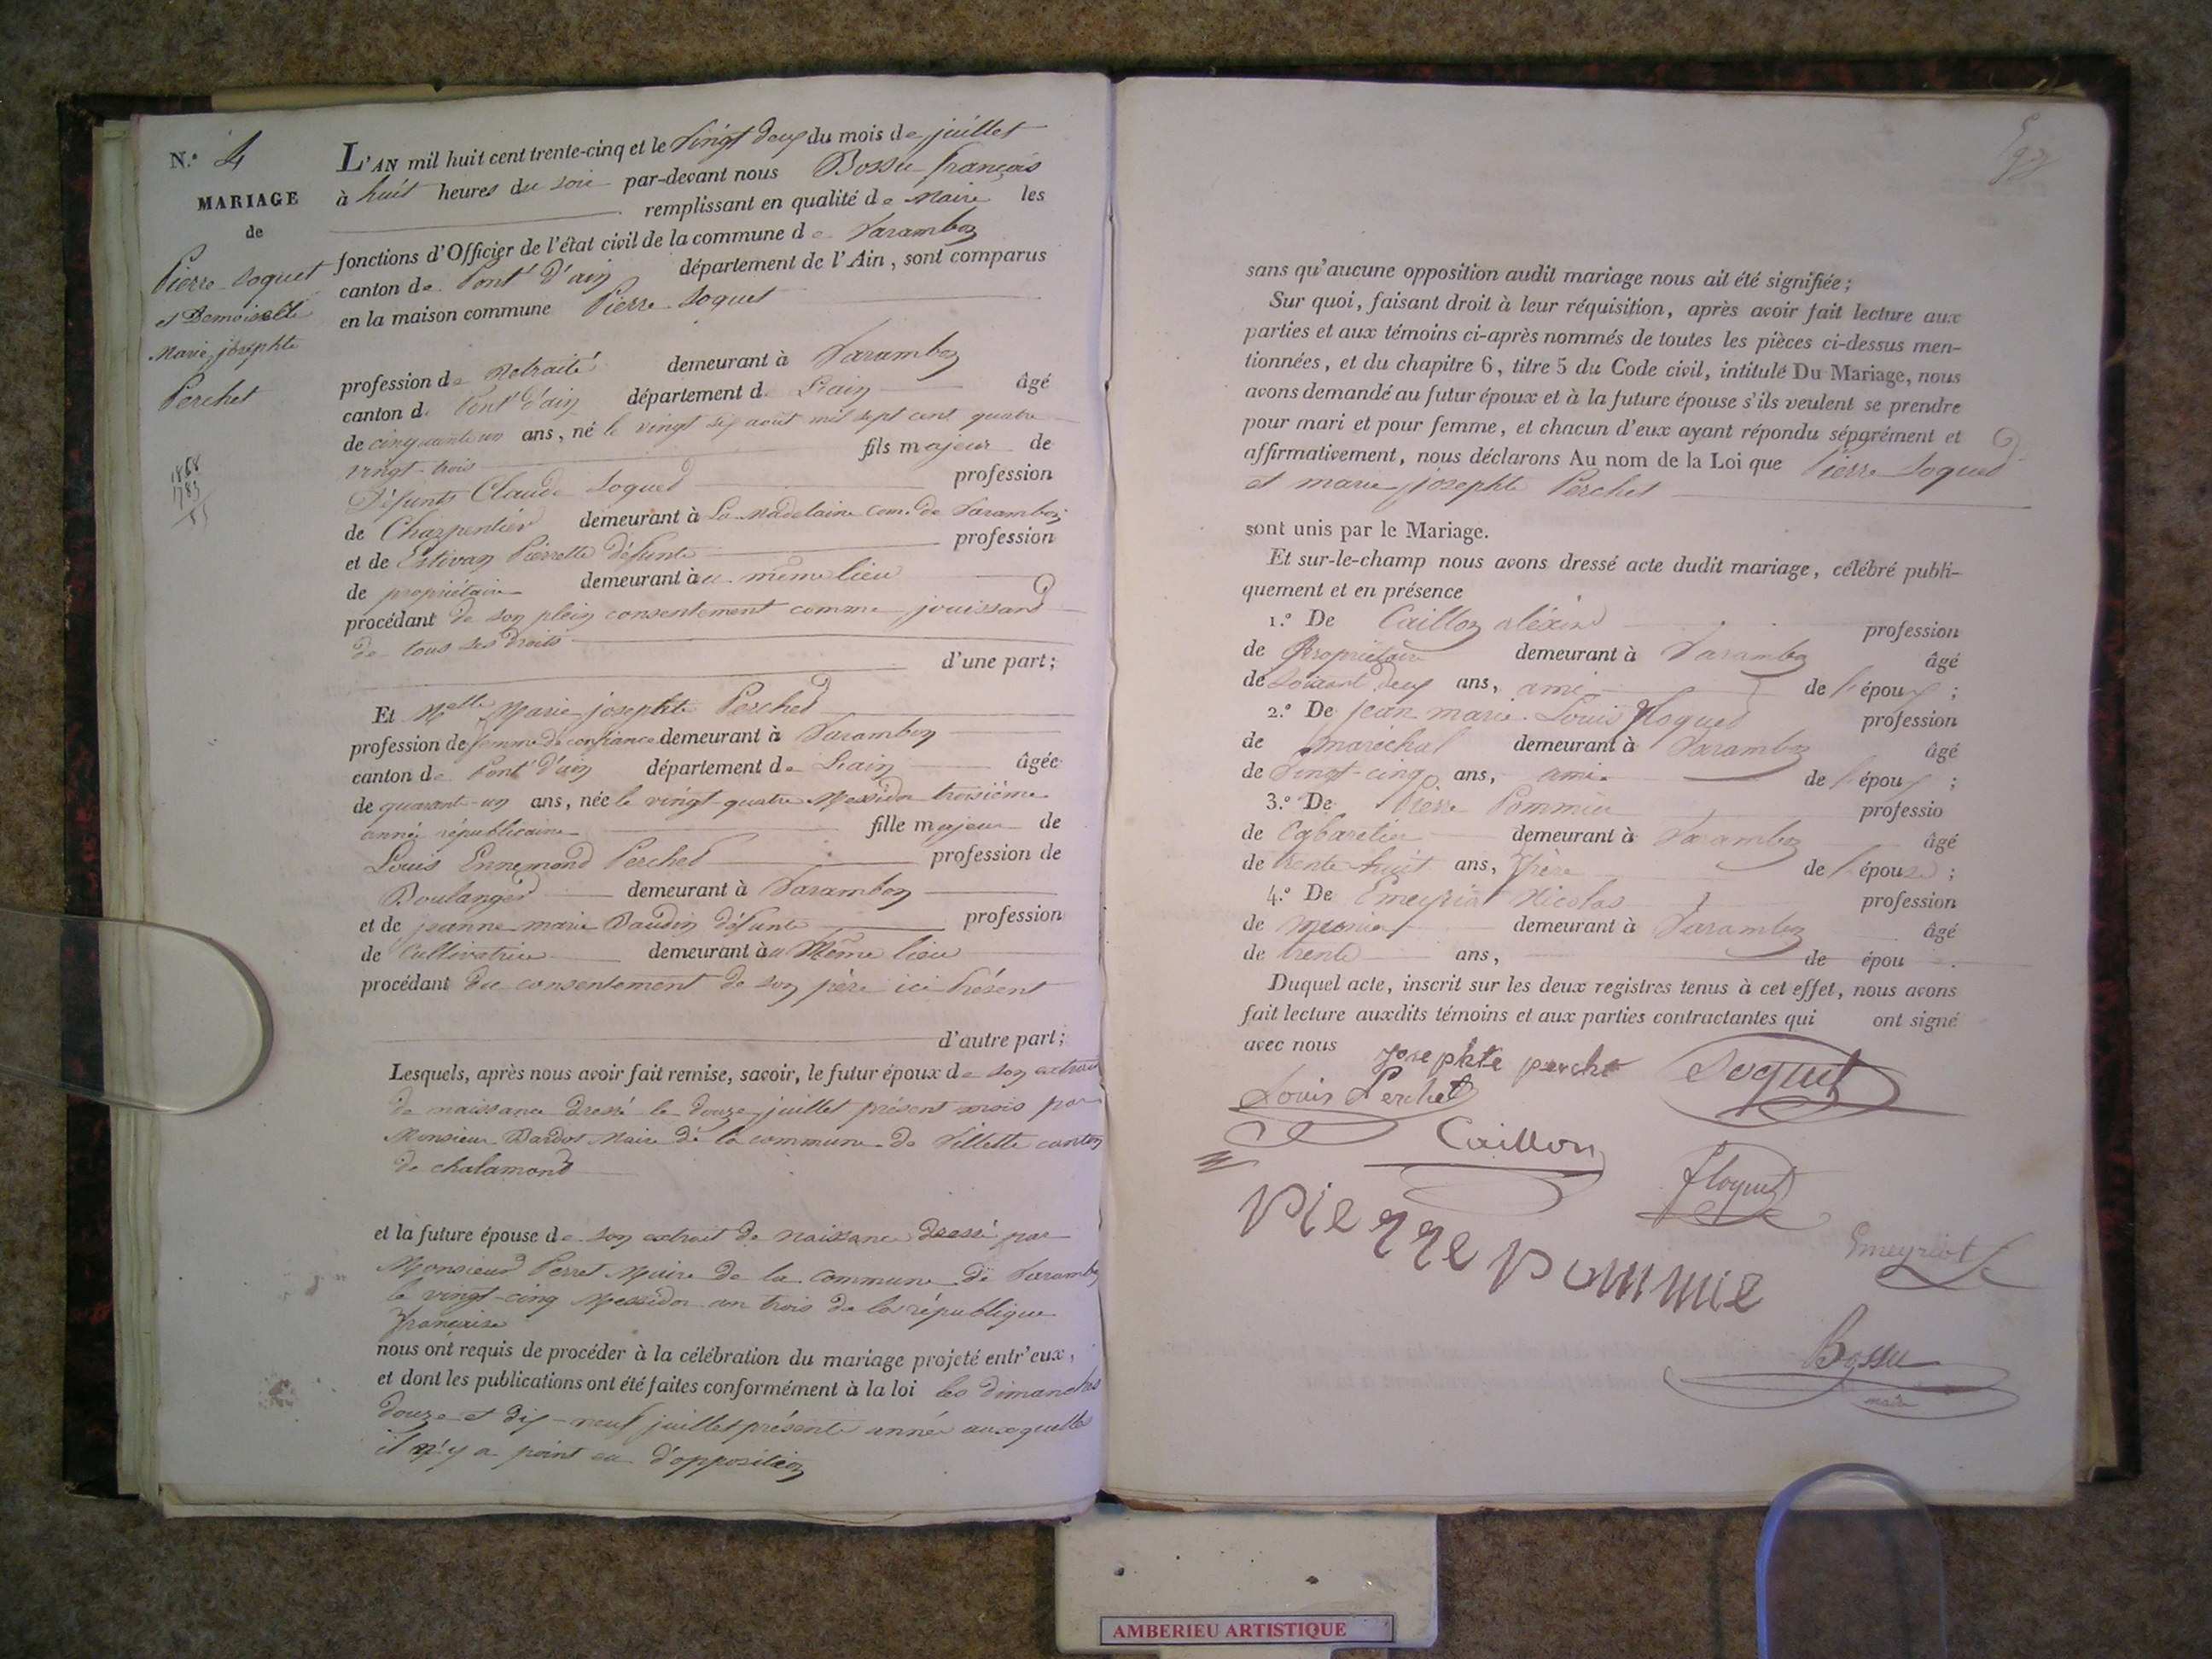 N.º 4
MARIAGE
de
Pierre Soquet
et Demoiselle
Marie josephte
Perchet
1868
1783
85
L'AN mil huit cent trente-cinq et le vingt deux du mois de juillet
à huit heures du soir par-devant nous Bossu françois
remplissant en qualité de Maire les
fonctions d'Officier de l'état civil de la commune de Varambon
canton de Pont d'ain département de l'Ain, sont comparus
en la maison commune Pierre Soquet
profession de Retraité demeurant à Varambon
canton de Pont d'ain département de L'ain âgé
de cinquante un ans, né le vingt six août mil sept cent quatre
vingt-trois fils majeur de
Défunts Claude Soquet profession
de Charpentier demeurant à La Madelaine com. de Varambon
et de Estivan Pierrette défunte profession
de propriétaire demeurant au même lieu
procédant de son plein consentement comme jouissant
de tous ses droits
d'une part;
Et Melle Marie josephte Perchet
profession de femme de confiance demeurant à Varambon
canton de Pont d'ain département de L'ain âgée
de quarante-un ans, née le vingt-quatre Messidor troisième
année républicaine fille majeur de
Louis Ennemond Perchet profession de
Boulanger demeurant à Varambon
et de jeanne marie Baudin défunte profession
de Cultivatrice demeurant au Même lieu
procédant du consentement de son père ici présent
d'autre part;
Lesquels, après nous avoir fait remise, savoir, le futur époux de son extrait
de naissance dressé le douze juillet présent mois par
Monsieur Bardot Maire de la commune de Villette canton
de chalamont
et la future épouse de son extrait de naissance dressé par
Monsieur Perret Maire de la commune de Varambon
le vingt-cinq Messidor an trois de la république
française
nous ont requis de procéder à la célébration du mariage projeté entr'eux,
et dont les publications ont été faites conformément à la loi les dimanches
douze et dix-neuf juillet présente année auxquelles
il n'y a point eu d'opposition
sans qu'aucune opposition audit mariage nous ait été signifiée;
Sur quoi, faisant droit à leur réquisition, après avoir fait lecture aux
parties et aux témoins ci-après nommés de toutes les pièces ci-dessus men-
tionnées, et du chapitre 6, titre 5 du Code civil, intitulé Du Mariage, nous
avons demandé au futur époux et à la future épouse s'ils veulent se prendre
pour mari et pour femme, et chacun d'eux ayant répondu séparément et
affirmativement, nous déclarons Au nom de la Loi que Pierre Soquet
et marie josephte Perchet
sont unis par le Mariage.
Et sur-le-champ nous avons dressé acte dudit mariage, célébré publi-
quement et en présence
1.º De Caillon aléxis profession
de Propriétaire demeurant à Varambon âgé
de soixant deux ans, ami de l'époux;
2.º De jean marie Louis floquet profession
de maréchal demeurant à Varambon âgé
de vingt-cinq ans, ami de l'époux;
3.º De Pierre Pommier professio
de Cabaretier demeurant à Varambon âgé
de trente huit ans, frère de l'épouse;
4.º De Emeyriat Nicolas profession
de meunier demeurant à Varambon âgé
de trente ans, de épou
Duquel acte, inscrit sur les deux registres tenus à cet effet, nous avons
fait lecture auxdits témoins et aux parties contractantes qui ont signé
avec nous
Josephte perche Soquet
Louis Perchet
Caillon
floquet
Pierre Pommie
Emeyriat
Bossu
maire
AMBERIEU ARTISTIQUE